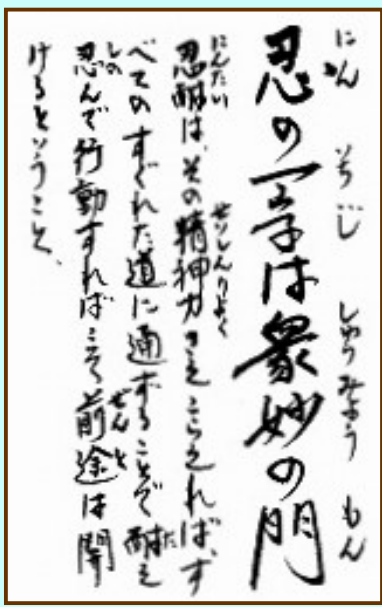 にん いちじ しゅうみょう もん
忍の一字は衆妙の門
にんたい せいしんりょく
忍耐は、その精神力さえこらえれば、す
べてのすぐれた道に通ずることで耐え
た
しの ぜんと
忍んで行動すればこそ前途は開
けるということ、